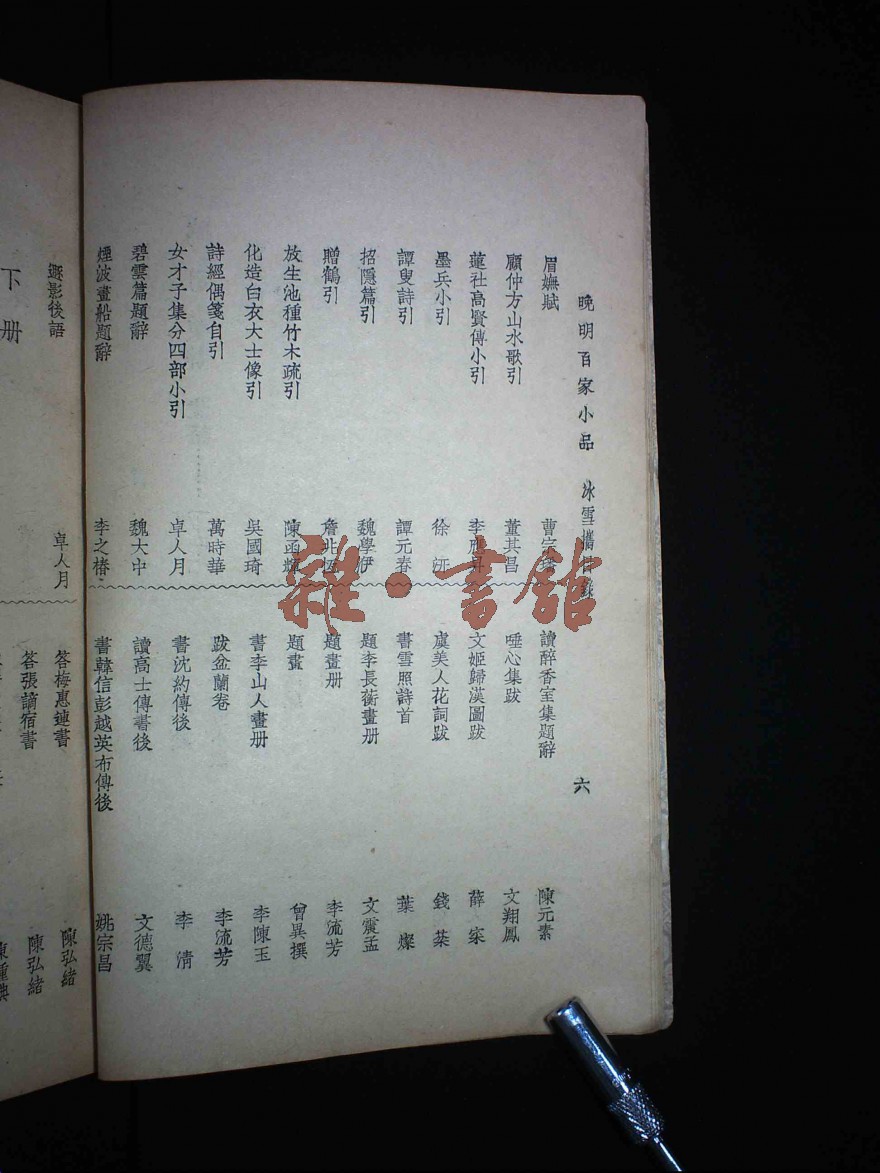 晚明百家小品　冰雪攜目錄　六
眉嫵賦　曹宗璠
顧仲方山水歌引　董其昌
蓮社高賢傳小引
墨兵小引　徐
譚叟詩引　譚元春
招隱篇引　魏學伊
贈鶴引　詹兆恆
放生池種竹木疏引　陳函煇
化造白衣大士像引　吳國琦
詩經偶箋自引　萬時華
女才子集分四部小引　卓人月
碧雲篇題辭　魏大中
煙波畫船題辭　李之椿
讀醉香室集題辭　陳元素
唾心集跋　文翔鳳
文姬歸漢圖跋　薛寀
虞美人花詞跋　錢棻
書雪照詩首　葉燦
題李長蘅畫册　文震孟
題畫册　李流芳
題畫　曾異撰
書李山人畫册　李陳玉
跋盆蘭卷　李流芳
書沈約傳後　李清
讀高士傳書後　文德翼
書韓信彭越英布傳後　姚宗昌
影後語　卓人月
下册
答梅惠連書　陳弘緒
答張謫宿書　陳弘緒
雜·書館